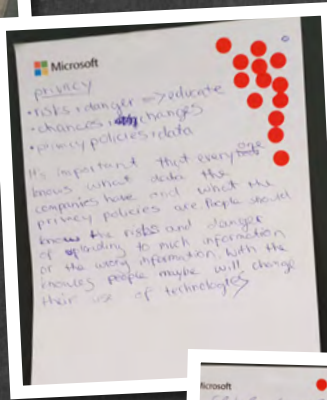 Microsoft
privacy
• risks + danger => educate
• chances + changes
• privacy policies + data
It's important that everyone
knows what data the
companies have and what the
privacy policies are. People should
know the risks and danger
of spending to much information
or the wrong information. With the
knowles people maybe will change
their use of technologies
Microsoft